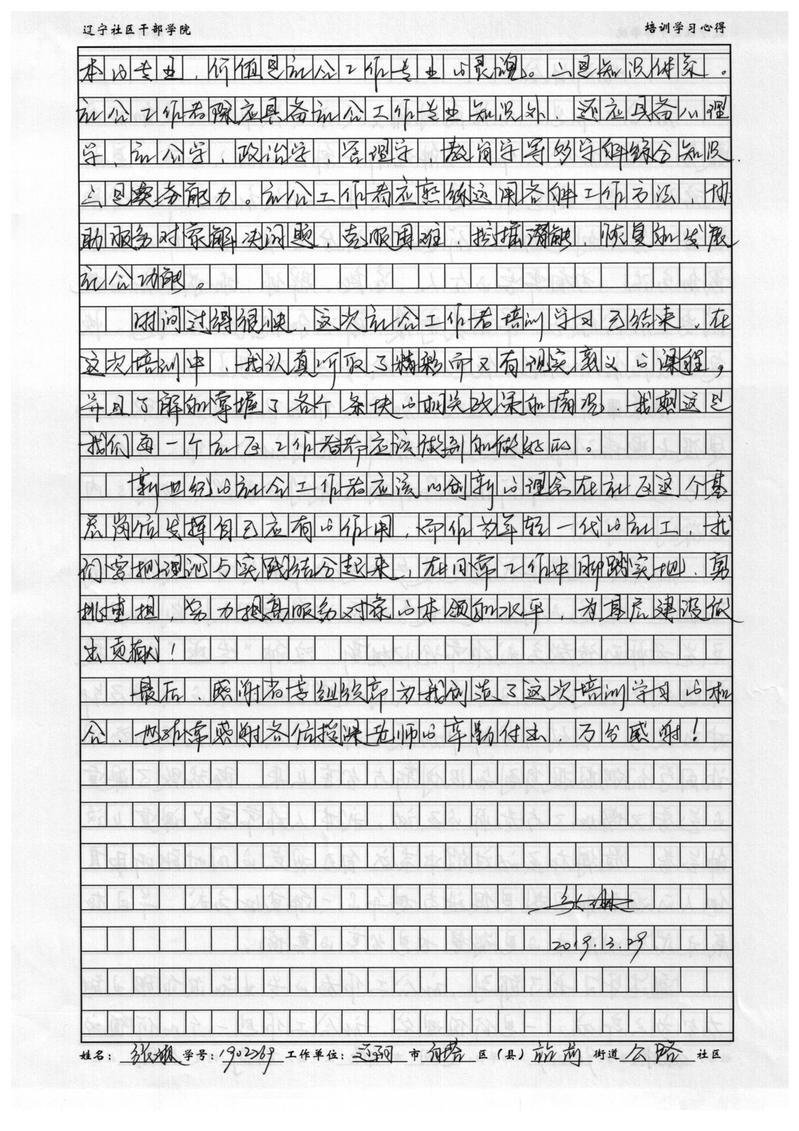 辽宁社区干部学院 培训学习心得
本的专业，价值是社会工作专业的灵魂。二是知识体系。
社会工作者除应具备社会工作专业知识外，还应具备心理
学，社会学，政治学，管理学，教育学等多学科综合知识．
三是实务能力。社会工作者应熟练运用各种工作方法，协
助服务对象解决问题，克服困难，挖掘潜能，恢复和发展
社会功能。
时间过得很快，这次社会工作者培训学习已结束，在
这次培训中，我认真听取了精彩而又有现实意义的课程，
并且了解和掌握了各个条块的相关政策和情况，我想这是
我们每一个社区工作者都应该做到和做好的。
新世纪的社会工作者应该以创新的理念在社区这个基
层岗位发挥自己应有的作用，而作为年轻一代的社工，我
们会把理论与实践结合起来，在日常工作中脚踏实地，勇
挑重担，努力提高服务对象的本领和水平，为基层建设做
出贡献！
最后，感谢省委组织部为我创造了这次培训学习的机
会，也非常感谢各位授课老师的辛勤付出，万分感谢！
2019.3.29
姓名： 学号：1902269 工作单位： 市 区（县） 街道 公路 社区